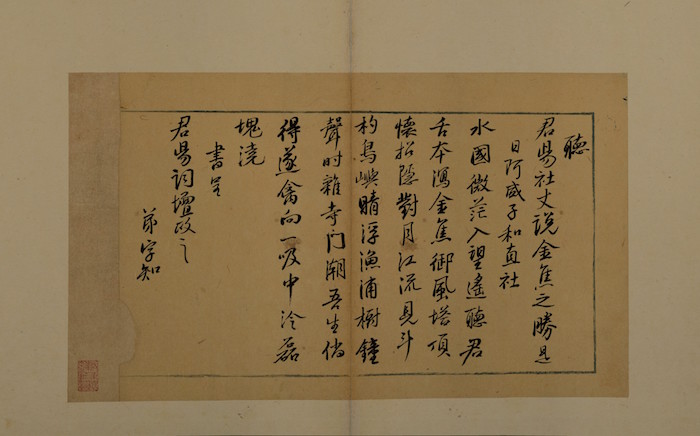 聽
君易社丈説金焦之勝是
日阿咸子和直社
水國微茫入望遙聽君
舌本瀉金焦御風塔頂
懷招隱對月江流見斗
杓鳥嶼晴浮漁浦樹鐘
聲时雜寺门潮吾生倘
得遂禽向一吸中泠磊
塊澆
書呈
君易詞壇政之
弟字知